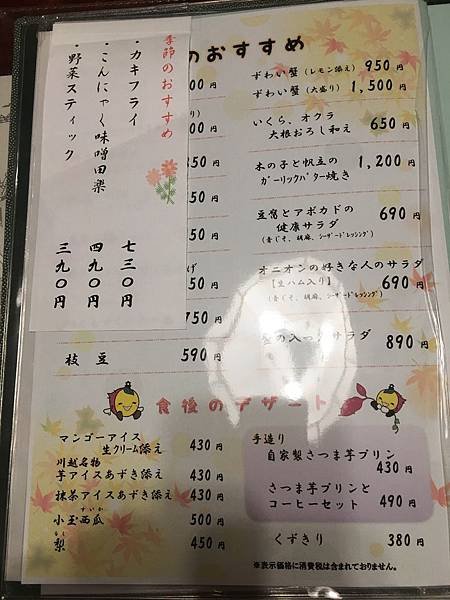 季節のおすすめ
・カキフライ 七三〇円
・こんにゃく味噌田楽 四九〇円
・野菜スティック 三九〇円
のおすすめ
ずわい蟹(レモン添え) 950円
ずわい蟹(大盛り) 1,500円
いくら、オクラ
大根おろし和え 650円
木の子と帆立の
ガーリックバター焼き 1,200円
豆腐とアボカドの
健康サラダ 690円
(青じそ、胡麻、シーザードレッシング)
オニオンの好きな人のサラダ
【生ハム入り】 690円
(青じそ、胡麻、シーザードレッシング)
の入ったサラダ 890円
750円
枝豆 590円
食後のデザート
マンゴーアイス
生クリーム添え 430円
川越名物
芋アイスあずき添え 430円
抹茶アイスあずき添え 430円
すいか
小玉西瓜 500円
なし
梨 450円
手造り
自家製さつま芋プリン
430円
さつま芋プリンと
コーヒーセット 490円
くずきり 380円
※表示価格に消費税は含まれておりません。